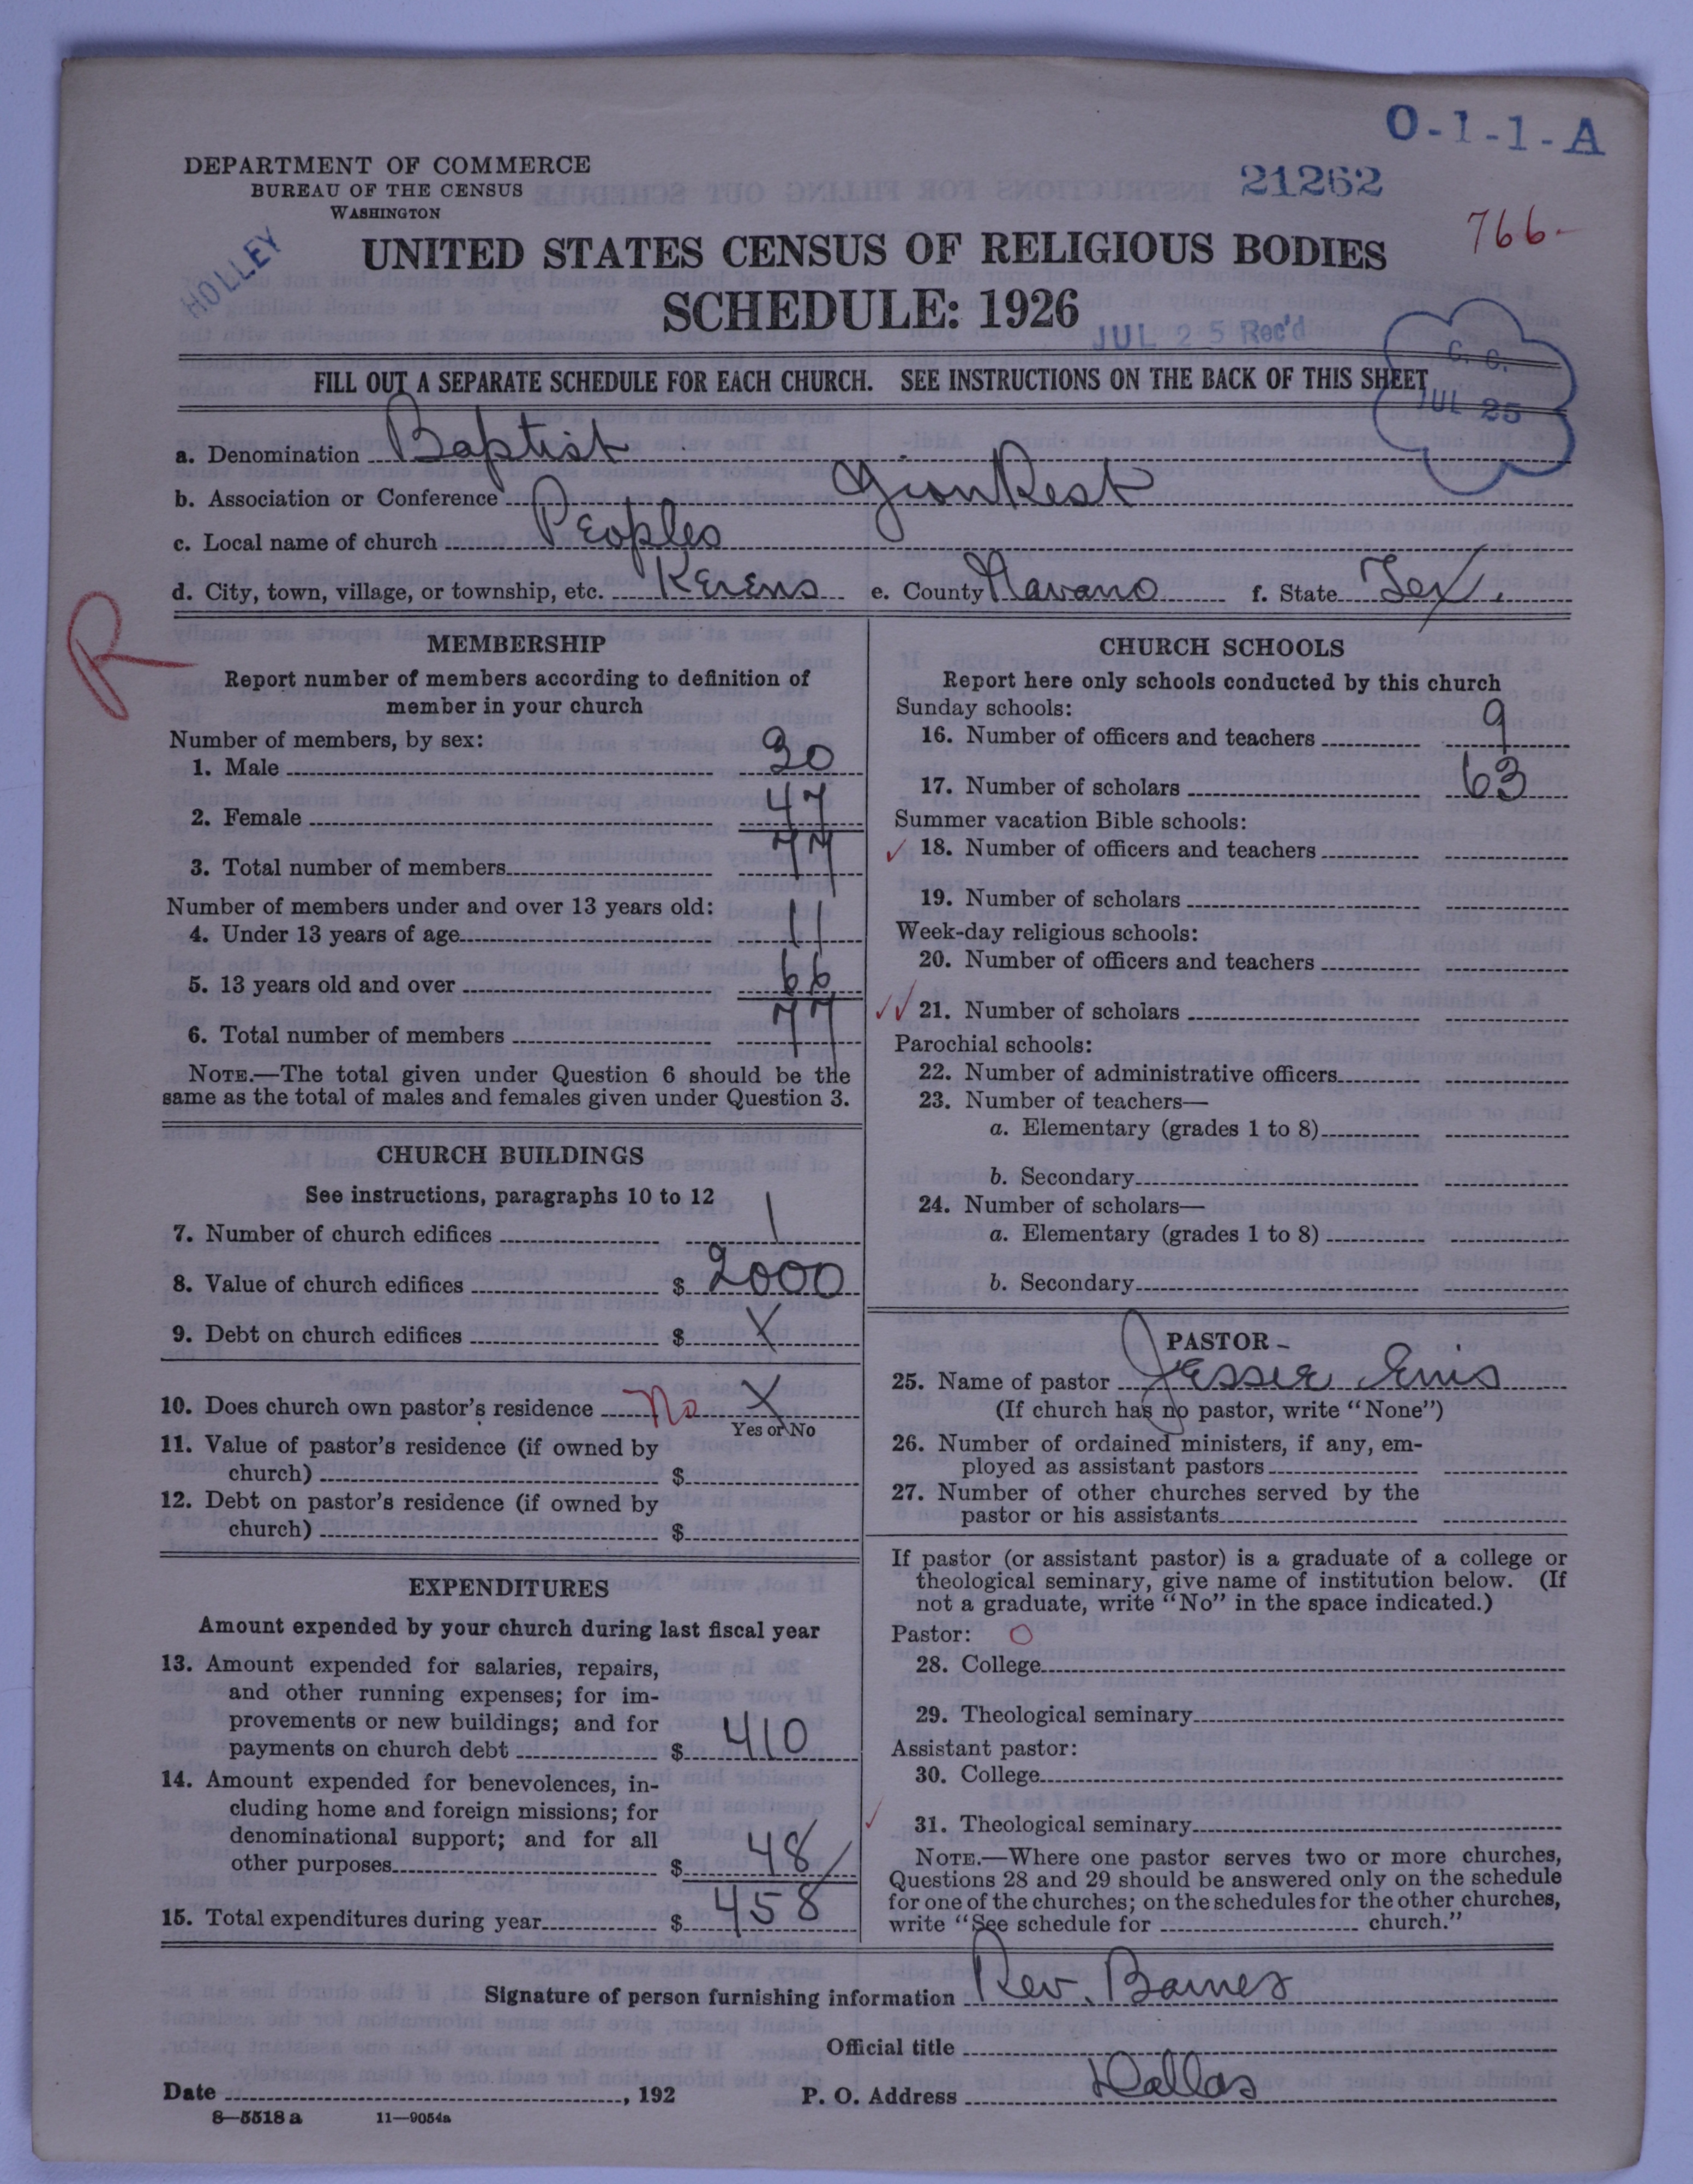 O-1-1-A
DEPARTMENT OF COMMERCE
BUREAU OF THE CENSUS
WASHINGTON
21262
766-
HOLLEY
UNITED STATES CENSUS OF RELIGIOUS BODIES
SCHEDULE: 1926
JUL 25 Rec'd
C. C.
JUL 25
FILL OUT A SEPARATE SCHEDULE FOR EACH CHURCH. SEE INSTRUCTIONS ON THE BACK OF THIS SHEET
a. Denomination Baptist
b. Association or Conference Zion Rest
c. Local name of church Peoples
d. City, town, village, or township, etc. Kerens e. County Navaro f. State Tex.
R
MEMBERSHIP
Report number of members according to definition of
member in your church
Number of members, by sex:
1. Male 30
2. Female 47
3. Total number of members 77
Number of members under and over 13 years old:
4. Under 13 years of age 11
5. 13 years old and over 66
6. Total number of members 77
NOTE.—The total given under Question 6 should be the
same as the total of males and females given under Question 3.
CHURCH BUILDINGS
See instructions, paragraphs 10 to 12
7. Number of church edifices 1
8. Value of church edifices $ 2000
9. Debt on church edifices $ X
10. Does church own pastor's residence No X
Yes or No
11. Value of pastor's residence (if owned by
church) $
12. Debt on pastor's residence (if owned by
church) $
EXPENDITURES
Amount expended by your church during last fiscal year
13. Amount expended for salaries, repairs,
and other running expenses; for im-
provements or new buildings; and for
payments on church debt $ 410
14. Amount expended for benevolences, in-
cluding home and foreign missions; for
denominational support; and for all
other purposes $ 48
15. Total expenditures during year $ 458
CHURCH SCHOOLS
Report here only schools conducted by this church
Sunday schools:
16. Number of officers and teachers 9
17. Number of scholars 63
Summer vacation Bible schools:
18. Number of officers and teachers
19. Number of scholars
Week-day religious schools:
20. Number of officers and teachers
21. Number of scholars
Parochial schools:
22. Number of administrative officers
23. Number of teachers—
a. Elementary (grades 1 to 8)
b. Secondary
24. Number of scholars—
a. Elementary (grades 1 to 8)
b. Secondary
PASTOR
25. Name of pastor Jessie Enis
(If church has no pastor, write "None")
26. Number of ordained ministers, if any, em-
ployed as assistant pastors
27. Number of other churches served by the
pastor or his assistants
If pastor (or assistant pastor) is a graduate of a college or
theological seminary, give name of institution below. (If
not a graduate, write "No" in the space indicated.)
Pastor: O
28. College
29. Theological seminary
Assistant pastor:
30. College
31. Theological seminary
NOTE.—Where one pastor serves two or more churches,
Questions 28 and 29 should be answered only on the schedule
for one of the churches; on the schedules for the other churches,
write "See schedule for church."
Signature of person furnishing information Rev. Barnes
Official title
Date , 192 P. O. Address Dallas
8—5518 a 11—9054a